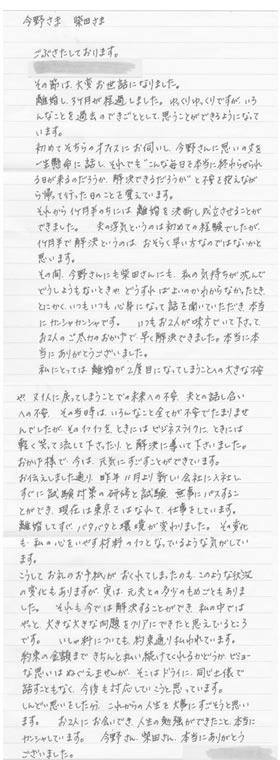 今野さま 柴田さま
ごぶさたしております。
その節は、大変お世話になりました。
離婚し、3ケ月が経過しました。ゆっくりゆっくりですが、いろ
んなことを過去のできごととして、思うことができるようになって
います。
初めてそちらのオフィスにお伺いし、今野さんに思いの丈を
一生懸命に話し、それでも"こんな毎日を本当に終わらせられ
る日が来るのだろうか、解決できるだろうか"と不安を抱えなが
ら帰って行った日のことを覚えています。
それから 月半のちには 離婚を決断し成立させることが
できました。 夫の浮気というのは初めての経験でしたが、
月半で解決というのは、おそらく早い方なのではないかと
思います。
その間、今野さんにも柴田さんにも、私の気持ちが沈んで
どうしようもないときや、どうすればよいのかわからなかったとき、
とにかく、いつもいつも心身になって話を聞いていただき、本当
にカンシャカンシャです。 いつもお2人が味方でいて下さって、
お2人のご尽力のおかげで、早く解決できました。本当に本
当にありがとうございました。
私にとっては離婚が2度目になってしまうことへの大きな不安
や、又1人に戻ってしまうことでの未来への不安、夫との話し合い
への不安、その当時は、いろんなこと全てが不安でたまりませ
んでしたが、その1つ1つを、ときにはビジネスライクに、ときには
軽く笑って流して下さったり、と解決に導いて下さいました。
おかげ様で、今は、元気にすごすことができています。
お伝えしました通り、昨年11月より新しい会社に入社し
すぐに試験対策の研修と試験、無事にパスするこ
とができ、現在は東京をはなれて、仕事をしています。
離婚してすぐ、バタバタと環境が変わりました。その変化
も、私の心をいやす材料の1つとなっているような気がしてい
ます。
こうしてお礼のお手紙が、おくれてしまったのも、このような状況
の変化もありますが、実は、元夫との多少のもめごともありま
した。 それも今では解決することができ、私の中では
やっと、大きな大きな問題をクリアにできたと思えているところ
です。 いしゃ料についても、約束通り払われています。
約束の金額まできちんと払い続けてくれるかどうか、ビミョー
な思いはぬぐえませんが、そこはドライに、同じ土俵で
話すこともなく、今後も対応していこうと思っています。
しんどい思いをしたから、これからの人生を大事にすごそうと思い
ます。 お2人にお会いでき、人生の勉強ができたこと、本当に
カンシャしています。 今野さん、柴田さん、本当にありがとう
ございました。